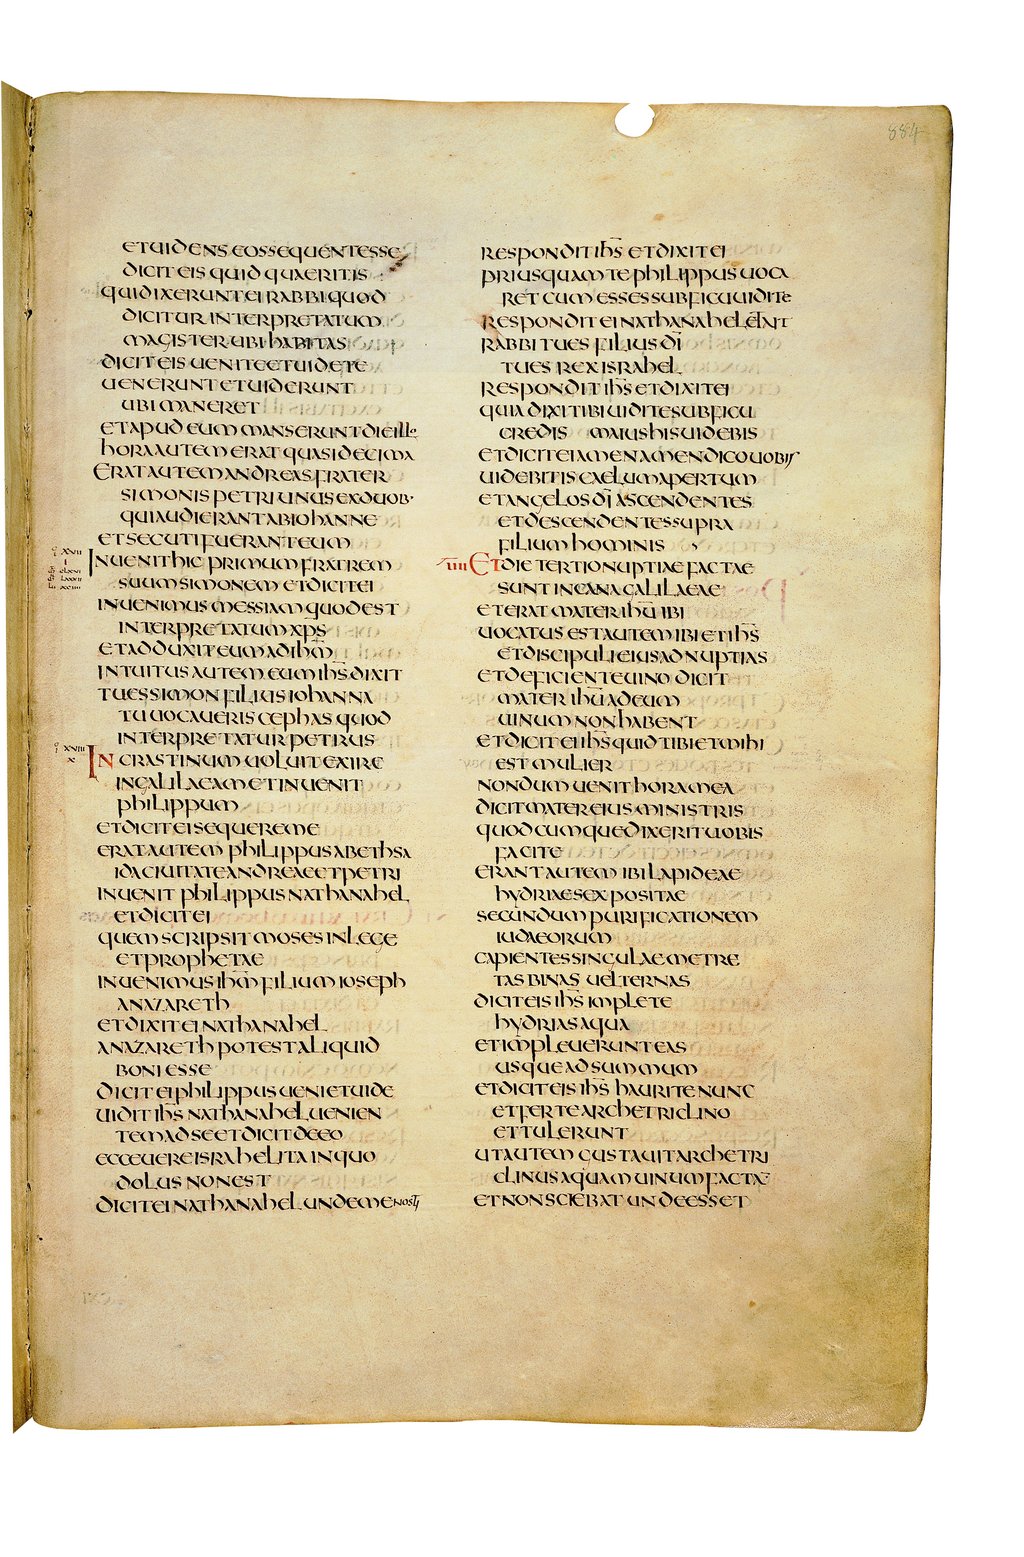 884
ET UIDENS EOS SEQUENTES SE
DICIT EIS QUID QUAERITIS
QUI DIXERUNT EI RABBI QUOD
DICITUR INTERPRETATUM
MAGISTER UBI HABITAS
DICIT EIS UENITE ET UIDETE
UENERUNT ET UIDERUNT
UBI MANERET
ET APUD EUM MANSERUNT DIE ILLO
HORA AUTEM ERAT QUASI DECIMA
ERAT AUTEM ANDREAS FRATER
SIMONIS PETRI UNUS EX DUOB·
QUI AUDIERANT AB IOHANNE
ET SECUTI FUERANT EUM
XVII
INUENIT HIC PRIMUM FRATREM
SUUM SIMONEM ET DICIT EI
INUENIMUS MESSIAM QUOD EST
INTERPRETATUM XP̅S
ET ADDUXIT EUM AD IH̅M
INTUITUS AUTEM EUM IH̅S DIXIT
TU ES SIMON FILIUS IOHANNA
TU UOCAUERIS CEPHAS QUOD
INTERPRETATUR PETRUS
XVIII
X
IN CRASTINUM UOLUIT EXIRE
IN GALILAEAM ET INUENIT
PHILIPPUM
ET DICIT EI SEQUERE ME
ERAT AUTEM PHILIPPUS A BETHSA
IDA CIUITATE ANDREAE ET PETRI
INUENIT PHILIPPUS NATHANAHEL
ET DICIT EI
QUEM SCRIPSIT MOSES IN LEGE
ET PROPHETAE
INUENIMUS IH̅M FILIUM IOSEPH
A NAZARETH
ET DIXIT EI NATHANAHEL
A NAZARETH POTEST ALIQUID
BONI ESSE
DICIT EI PHILIPPUS UENI ET UIDE
UIDIT IH̅S NATHANAHEL UENIEN
TEM AD SE ET DICIT DE EO
ECCE UERE ISRAHELITA IN QUO
DOLUS NON EST
DICIT EI NATHANAHEL UNDE ME NOSTI
RESPONDIT IH̅S ET DIXIT EI
PRIUSQUAM TE PHILIPPUS UOCA
RET CUM ESSES SUB FICU UIDI TE
RESPONDIT EI NATHANAHEL ET AIT
RABBI TU ES FILIUS DI̅
TU ES REX ISRAHEL
RESPONDIT IH̅S ET DIXIT EI
QUIA DIXI TIBI UIDI TE SUB FICU
CREDIS MAIUS HIS UIDEBIS
ET DICIT EI AMEN AMEN DICO UOBIS
UIDEBITIS CAELUM APERTUM
ET ANGELOS DI̅ ASCENDENTES
ET DESCENDENTES SUPRA
FILIUM HOMINIS
IIII ET DIE TERTIO NUPTIAE FACTAE
SUNT IN CANA GALILAEAE
ET ERAT MATER IH̅U IBI
UOCATUS EST AUTEM IBI ET IH̅S
ET DISCIPULI EIUS AD NUPTIAS
ET DEFICIENTE UINO DICIT
MATER IH̅U AD EUM
UINUM NON HABENT
ET DICIT EI IH̅S QUID TIBI ET MIHI
EST MULIER
NONDUM UENIT HORA MEA
DICIT MATER EIUS MINISTRIS
QUODCUMQUE DIXERIT UOBIS
FACITE
ERANT AUTEM IBI LAPIDEAE
HYDRIAE SEX POSITAE
SECUNDUM PURIFICATIONEM
IUDAEORUM
CAPIENTES SINGULAE METRE
TAS BINAS UEL TERNAS
DICIT EIS IH̅S IMPLETE
HYDRIAS AQUA
ET IMPLEUERUNT EAS
USQUE AD SUMMUM
ET DICIT EIS IH̅S HAURITE NUNC
ET FERTE ARCHETRICLINO
ET TULERUNT
UT AUTEM GUSTAUIT ARCHETRI
CLINUS AQUAM UINUM FACTA̅
ET NON SCIEBAT UNDE ESSET